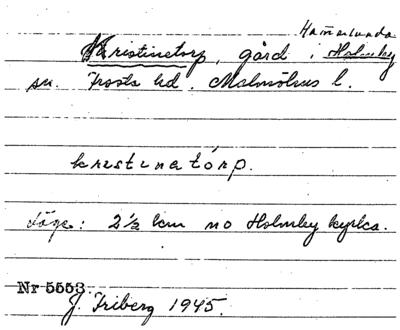 Hammarlunda
Kristinetorp, gård i Holmby
sn. Frosta hd. Malmöhus l.
krestenatórp.
läge: 2½ km no Holmby kyrka.
Nr 5553.
J. Friberg 1945.